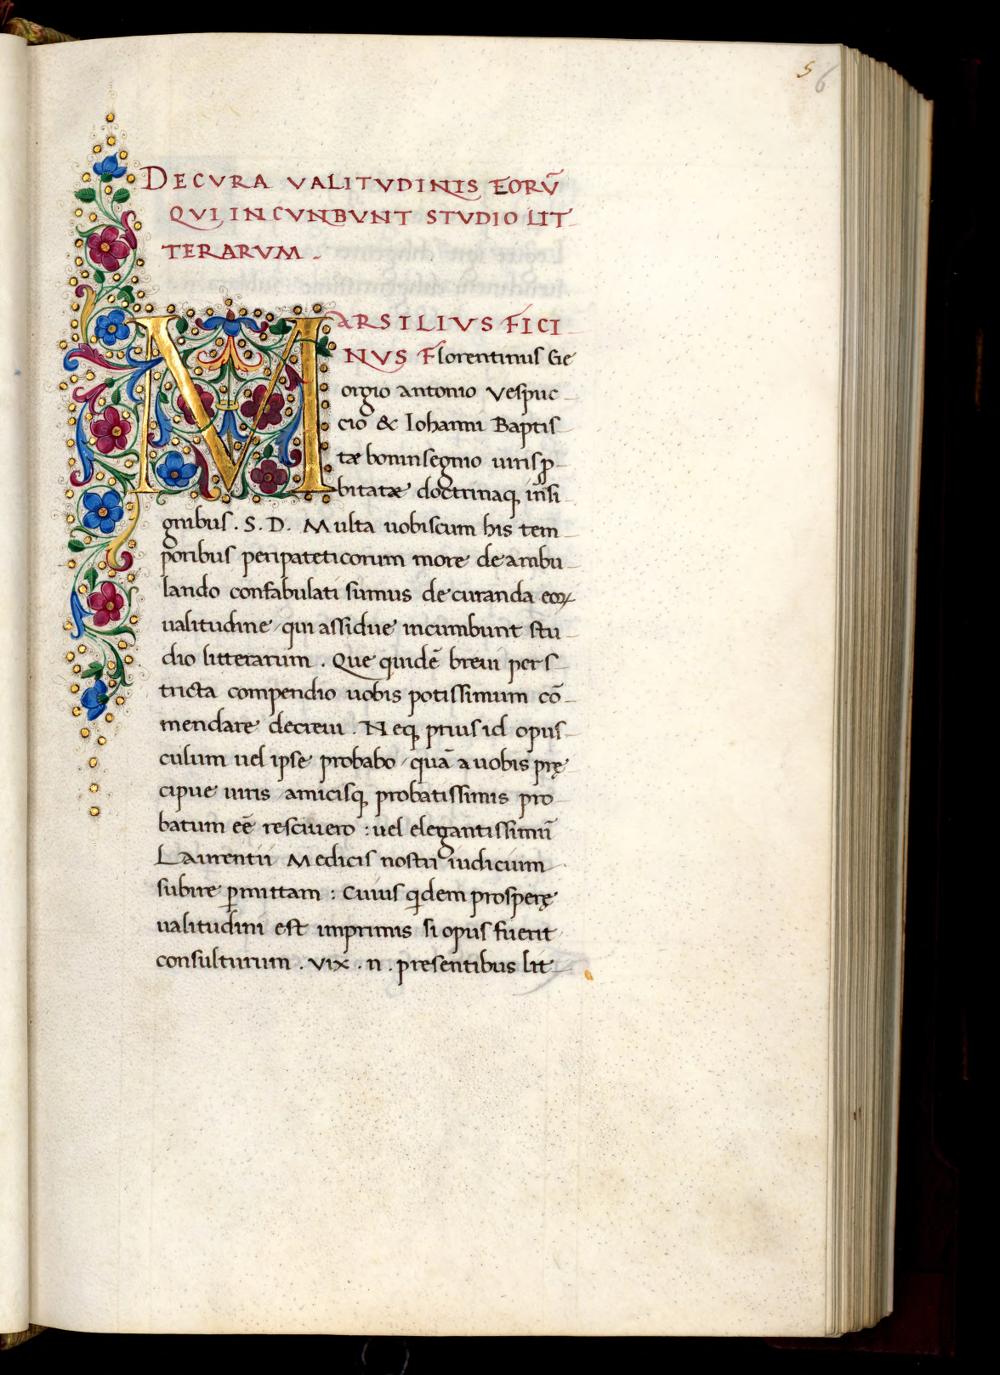 5
6
DE CVRA VALITVDINIS EORṼ
QVI INCVNBVNT STVDIO LIT
TERARVM .
MARSILIVS FICI
NVS Florentinus Ge
orgio antonio Vespuc
cio & Iohanni Baptis
tæ boninsegnio uirisꝓ
bitatæ doctrinaqꝫ insi
gnibus . S. D. Multa uobiscum his tem
poribus peripateticorum more deambu
lando confabulati sumus de curanda eoꝝ
ualitudine qui assidue incumbunt stu
dio litterarum . Que quidẽ breui pers
tricta compendio uobis potissimum cõ
mendare decreui . Neqꝫ prius id opus
culum uel ipse probabo quã a uobis prę
cipue uiris amicisqꝫ probatissimis pro
batum eẽ resciuero : uel elegantissimi
Laurentii Medicis nostri iudicium
subire ꝑmittam : Cuius qdem prosperę
ualitudini est imprimis si opus fuerit
consulturum . Vix . n . presentibus lit